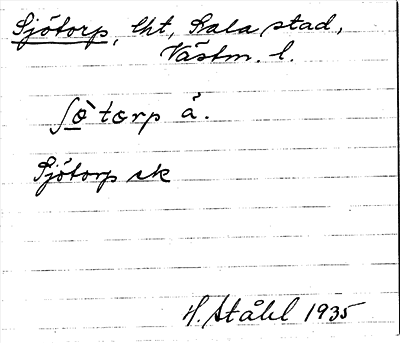 Sjötorp, lht, Sala stad,
Västm. l.
ʃö̀torp å.
Sjötorp sk
H. Ståhl 1935